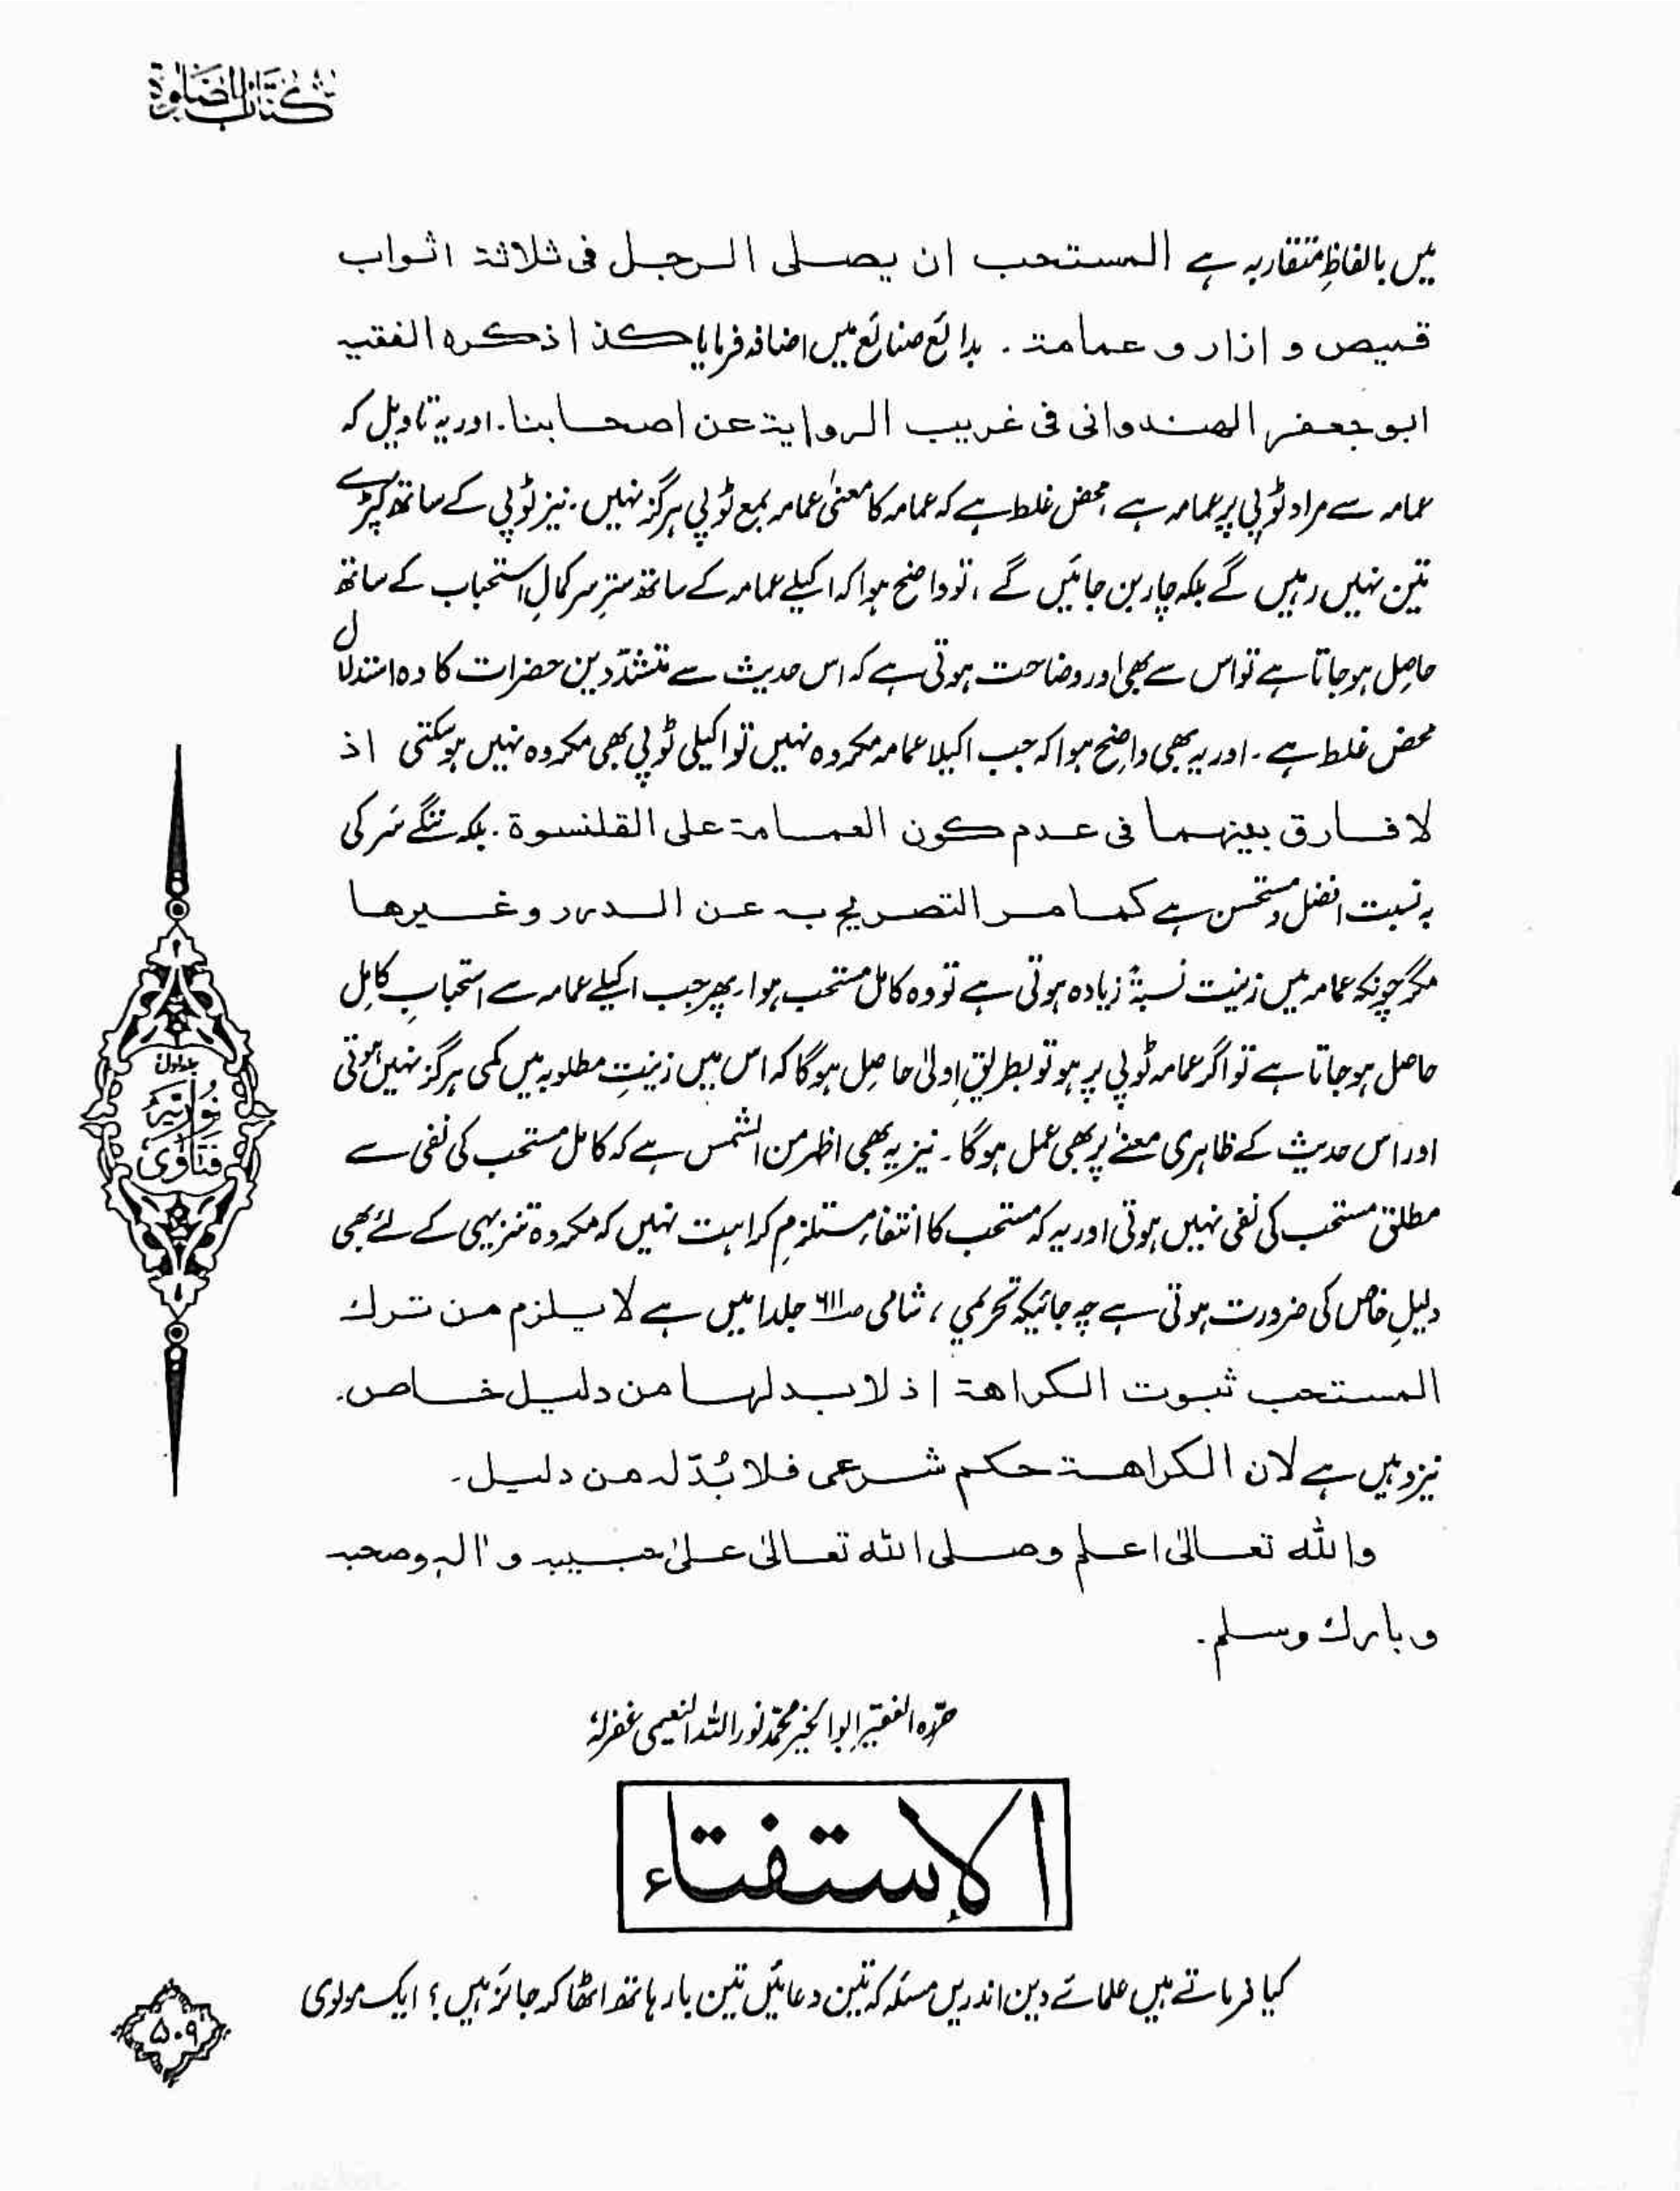 كتاب الصلوة
میں بالفاظِ متقاربہ ہے المستحب ان یصلی الرجل فی ثلاثة اثواب
قمیص و ازار و عمامة ۔ بدائع صنائع میں اضافہ فرمایا کذا ذکره الفقیہ
ابو جعفر الهندوانی فی غریب الروایة عن اصحابنا۔ اور یہ تاویل کہ
عمامہ سے مراد ٹوپی پر عمامہ ہے محض غلط ہے کہ عمامہ کا معنیٰ عمامہ بمع ٹوپی ہرگز نہیں۔ نیز ٹوپی کے ساتھ کپڑے
تین نہیں رہیں گے بلکہ چار بن جائیں گے، تو واضح ہوا کہ اکیلے عمامہ کے ساتھ سترِ سر کمالِ استحباب کے ساتھ
حاصل ہو جاتا ہے تو اس سے بھی اور وضاحت ہوتی ہے کہ اس حدیث سے متشدّدین حضرات کا وہ استدلال
محض غلط ہے۔ اور یہ بھی واضح ہوا کہ جب اکیلا عمامہ مکروہ نہیں تو اکیلی ٹوپی بھی مکروہ نہیں ہو سکتی اذ
لا فارق بینهما فی عدم کون العمامة على القلنسوة۔ بلکہ ننگے سَر کی
بہ نسبت افضل و مستحسن ہے کما مر التصریح بہ عن الدرر وغیرها
مگر چونکہ عمامہ میں زینت نسبۃً زیادہ ہوتی ہے تو وہ کامل مستحب ہوا۔ پھر جب اکیلے عمامہ سے استحبابِ کامل
حاصل ہو جاتا ہے تو اگر عمامہ ٹوپی پر ہو تو بطریقِ اولیٰ حاصل ہوگا کہ اس میں زینتِ مطلوبہ میں کمی ہرگز نہیں ہوتی
اور اس حدیث کے ظاہری معنے پر بھی عمل ہوگا۔ نیز یہ بھی اظہر من الشمس ہے کہ کامل مستحب کی نفی سے
مطلق مستحب کی نفی نہیں ہوتی اور یہ کہ مستحب کا انتفاء مستلزمِ کراہت نہیں کہ مکروہ تنزیہی کے لئے بھی
دلیلِ خاص کی ضرورت ہوتی ہے چہ جائیکہ تحریمی، شامی صـ۶۱۱ جلد۱ میں ہے لا یلزم من ترك
المستحب ثبوت الکراهة اذ لا بد لها من دلیل خاص۔
نیز وہیں ہے لان الکراهة حکم شرعی فلا بُدّ لہ من دلیل۔
والله تعالیٰ اعلم وصلی الله تعالیٰ علیٰ حبیبہ و اٰلہ وصحبہ
وبارك وسلم۔
حرّرہ الفقیر ابوالخیر محمّد نور اللہ النعیمی غفرلہٗ
جلد اول
نُورِيَّه
فَتَاوٰى
الإستفتاء
کیا فرماتے ہیں علمائے دین اندریں مسئلہ کہ تین دعائیں تین بار ہاتھ اٹھا کر جائز ہیں؟ ایک مولوی
۵۰۹